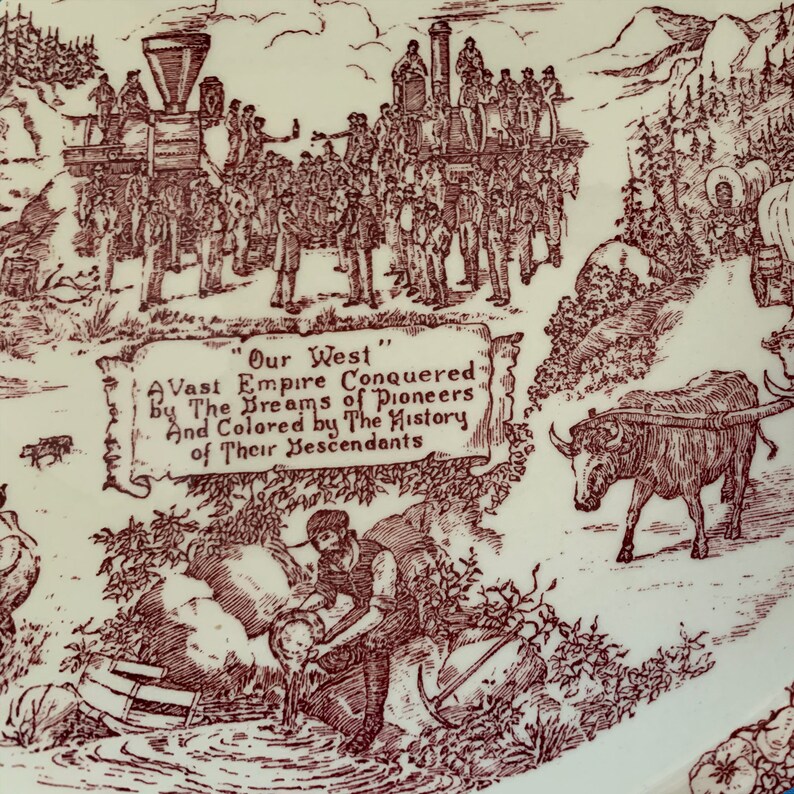 "Our West"
A Vast Empire Conquered
by The Dreams of Pioneers
And Colored by The History
of Their Descendants